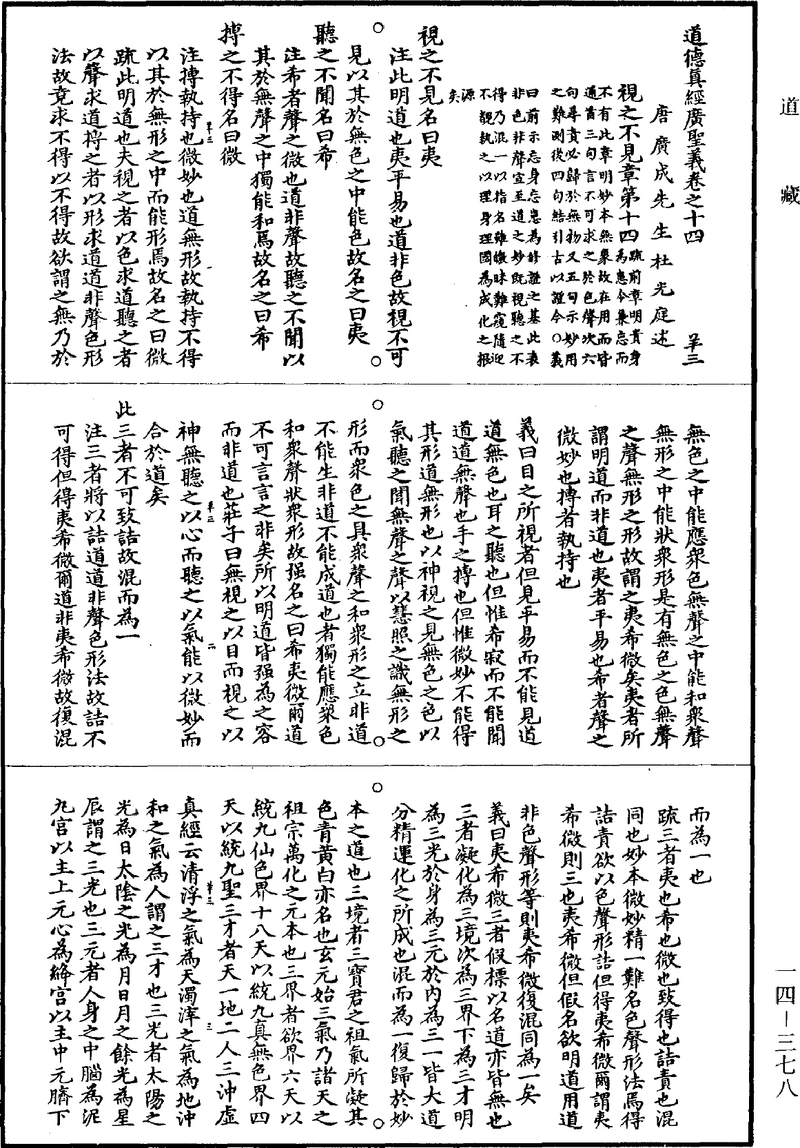 道藏
道德真經廣聖義卷之十四
羊三
唐廣成先生杜光庭述
視之不見章第十四
疏前章明貴身
為患今兼忘而
不有此章明妙本無象故在用而皆
通舊三句言不可求之於色聲次六
句尋責必歸於無物又五句示妙用
之難測後四句結引古以證今○義
曰前示忘身忘患為修證之基此表
非色非聲宣至道之妙既視聽之不
得乃混一以指名雖恍昧難窺隨迎
不覩執之以理身理國為成化之根
源矣
視之不見名曰夷
注此明道也夷平易也道非色故視不可
見以其於無色之中能色故名之曰夷
聽之不聞名曰希
注希者聲之微也道非聲故聽之不聞以
其於無聲之中獨能和焉故名之曰希
搏之不得名曰微
注搏執持也微妙也道無形故執持不得
以其於無形之中而能形焉故名之曰微
疏此明道也夫視之者以色求道聽之者
以聲求道搏之者以形求道道非聲色形
法故竟求不得以不得故欲謂之無乃於
無色之中能應眾色無聲之中能和眾聲
無形之中能狀眾形是有無色之色無聲
之聲無形之形故謂之夷希微矣夷者所
謂明道而非道也夷者平易也希者聲之
微妙也搏者執持也
義曰目之所視者但見平易而不能見道
道無色也耳之聽也但惟希寂而不能聞
道道無聲也手之搏也但惟微妙不能得
其形道無形也以神視之見無色之色以
氣聽之聞無聲之聲以慧照之識無形之
形而眾色之具眾聲之和眾形之立非道
不能生非道不能成道也者獨能應眾色
和眾聲狀眾形故强名之曰希夷微爾道
不可言言之非矣所以明道皆强為之容
而非道也莊子曰無視之以目而視之以
神無聽之以心而聽之以氣能以微妙而
合於道矣
此三者不可致詰故混而為一
注三者將以詰道道非聲色形法故詰不
可得但得夷希微爾道非夷希微故復混
而為一也
疏三者夷也希也微也致得也詰責也混
同也妙本微妙精一難名色聲形法焉得
詰責欲以色聲形詰但得夷希微爾謂夷
希微則三也夷希微但假名欲明道用道
非色聲形等則夷希微復混同為一矣
義曰夷希微三者假標以名道亦皆無也
三者凝化為三境次為三界下為三才明
為三光於身為三元於內為三一皆大道
分精運化之所成也混而為一復歸於妙
本之道也三境者三寶君之祖氣所凝其
色青黃白亦名也玄元始三氣乃諸天之
祖宗萬化之元本也三界者欲界六天以
統九仙色界十八天以統九真無色界四
天以統九聖三才者天一地二人三沖虛
真經云清浮之氣為天濁滓之氣為地沖
和之氣為人謂之三才也三光者太陽之
光為日太陰之光為月日月之餘光為星
辰謂之三光也三元者人身之中腦為泥
九宮以主上元心為絳宮以主中元臍下
一四－三七八